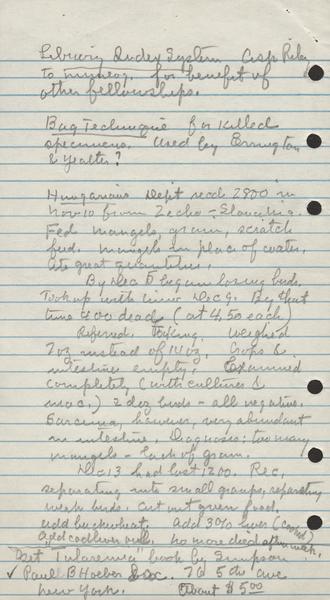 Library Index System
to mimeog. for benefit of
other fellowships.
Bag Technique for killed
specimens. Used by Errington
& Yeatter?
Hungarians Dept recd 2800 in
Nov 10 from Zecho-Slovackia.
Fed mangels, grain, scratch
feed. Mangels in place of water.
Ate great quantities.
By Dec 5 began losing birds.
Took up with univ Dec 9. By that
time 400 dead (at 4.50 each)
Weighed
7 oz instead of 14 oz. Crops &
intestines empty. Examined
completely (with cultures &
mac.) 2 doz birds - all negative.
Sarcina, however, very abundant
in intestine. Diagnosis: too many
mangels - lack of grain.
Dec 13 had lost 1200. Rec.
separating into small groups, separating
weak birds. Cut out green food,
add buckwheat. Add 3% liver (cooked)
Add codliver oil. No more died after week.
Get "Tularemia" book by Simpson
✓ Paul B Hoeber Inc. 76 5th ave
New York. About $5.00